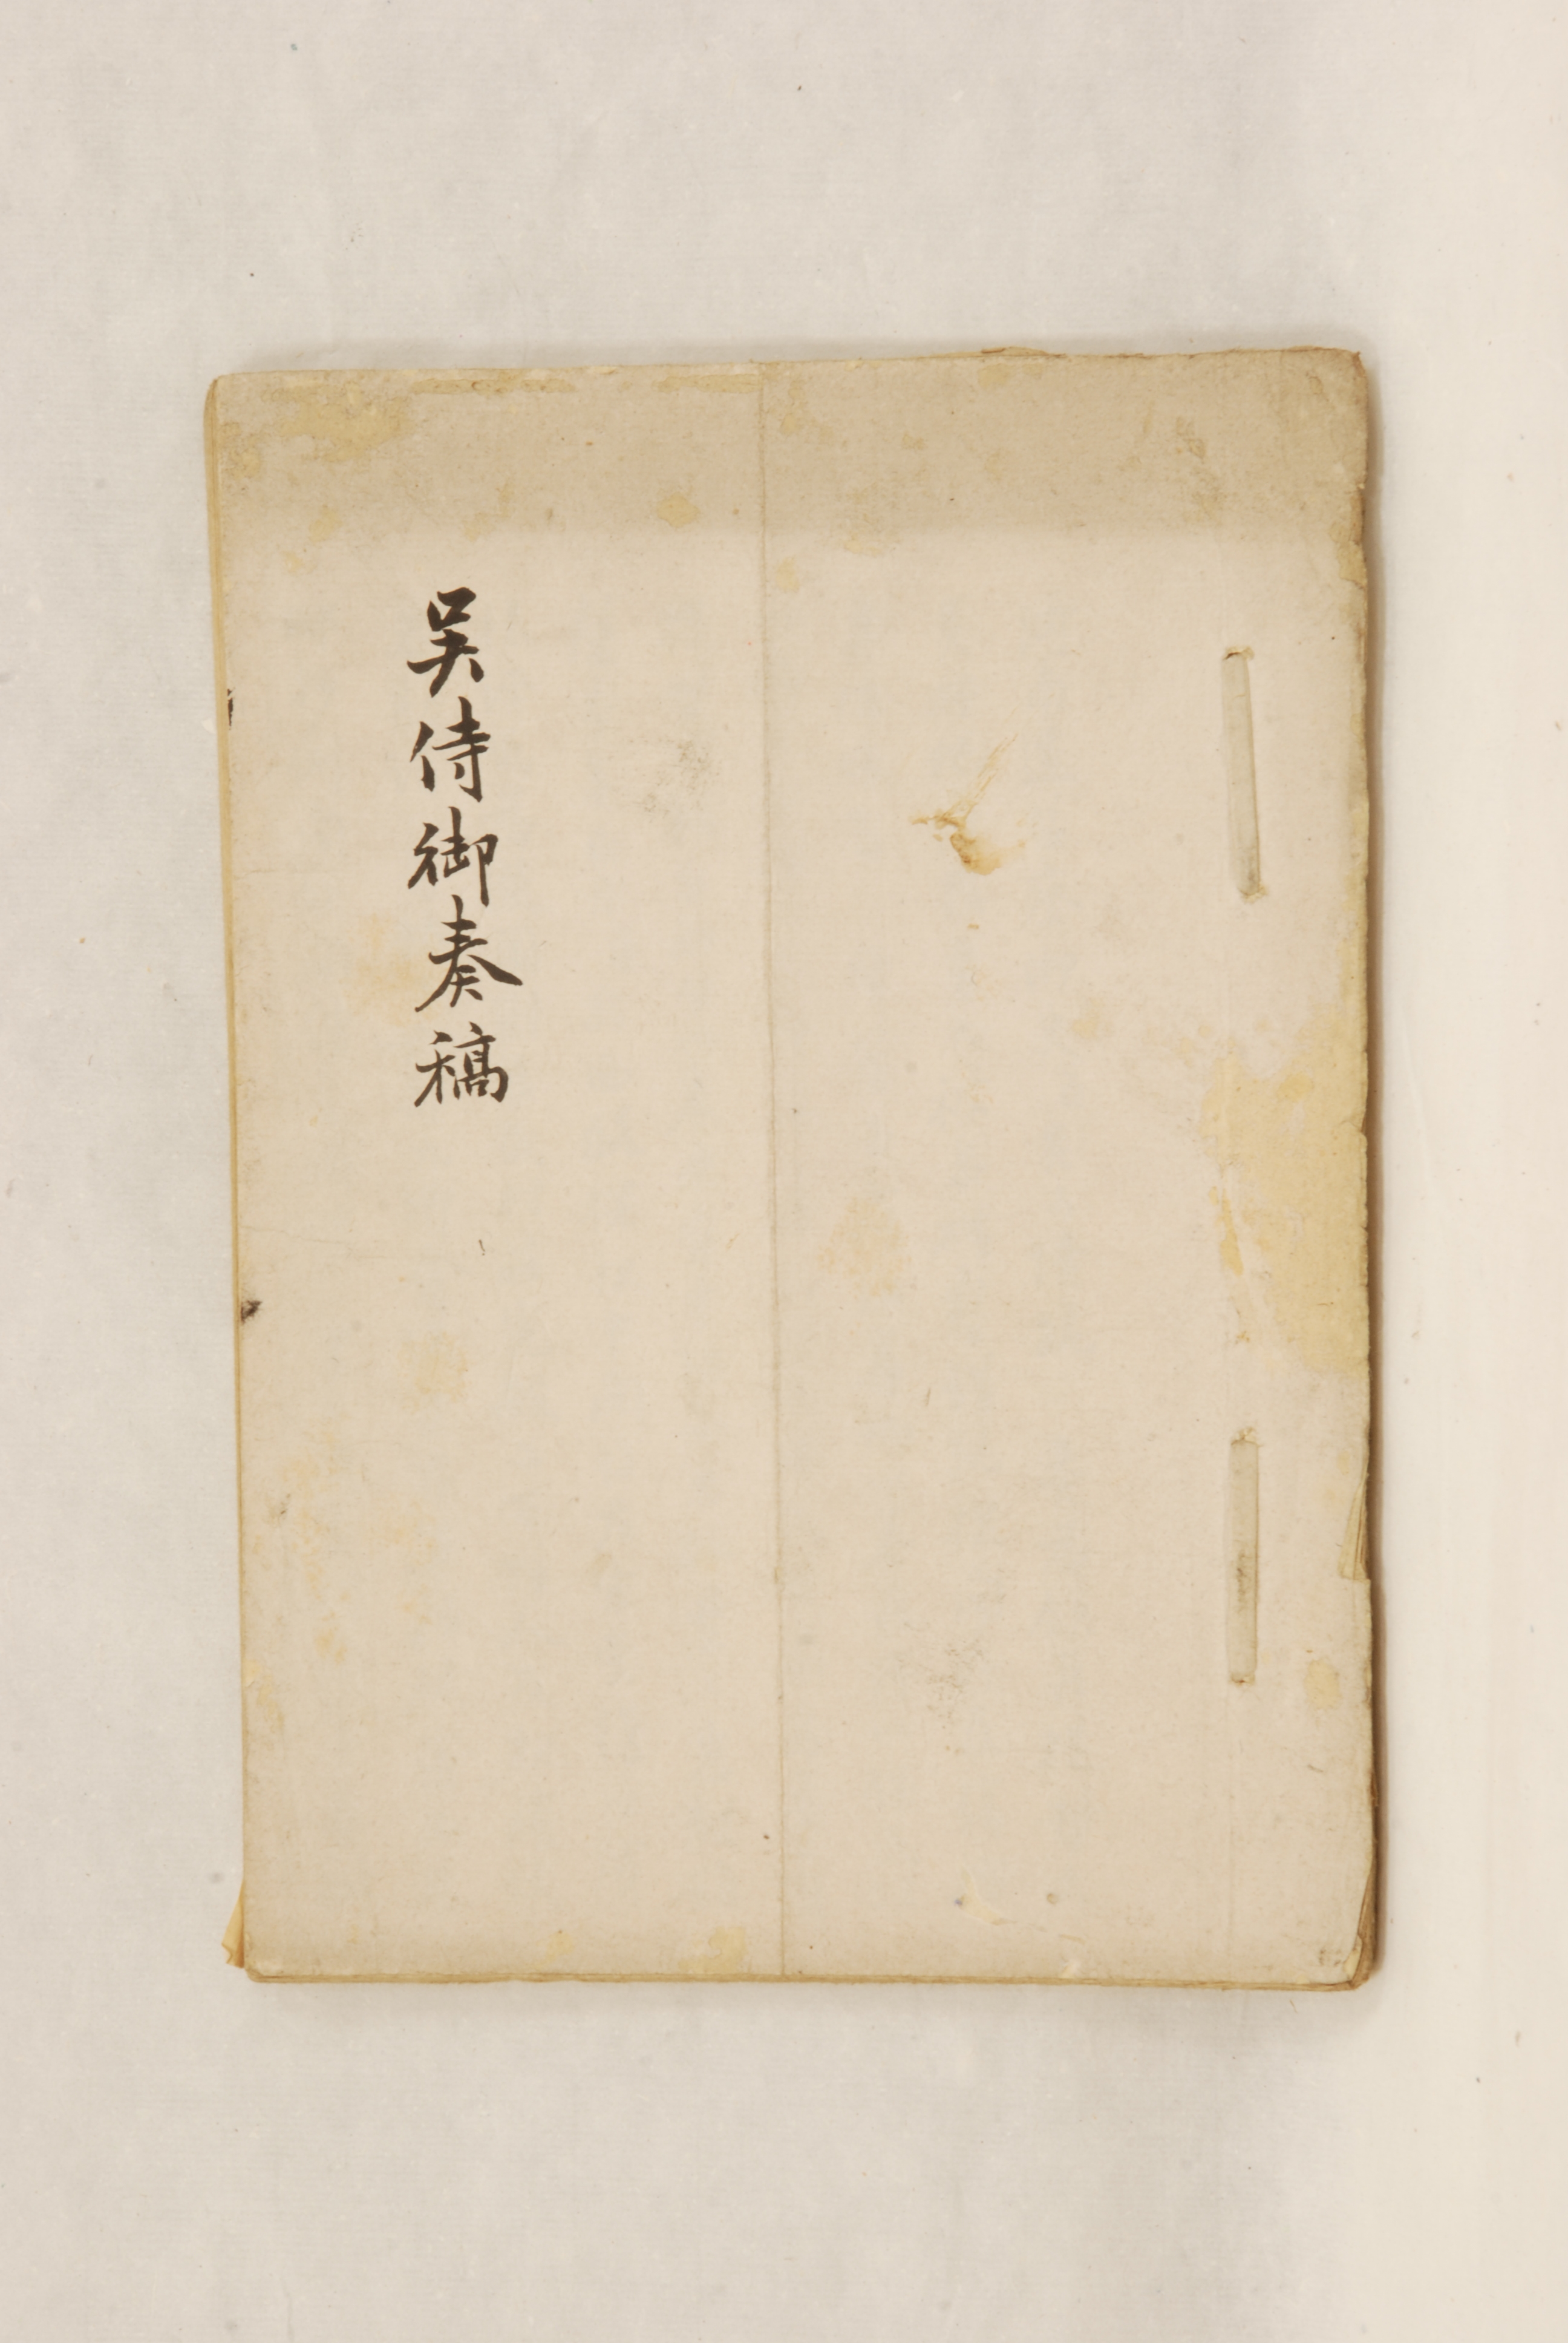 吳侍御奏稿